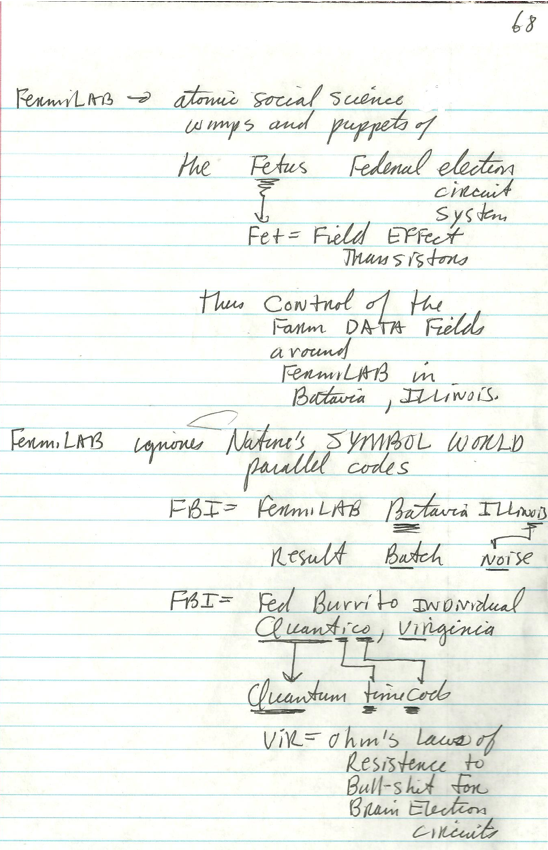 68
FermiLAB → atomic social science
wimps and puppets of
the Fetus Federal election
circuit
system
Fet = Field EFFect
Transistors
thus control of the
Farm DATA Fields
around
FermiLAB in
Batavia, ILLinois.
FermiLAB ignores Nature's SYMBOL WORLD
parallel codes
FBI = FermiLAB Batavia ILLinois
Result Batch Noise
FBI = Fed Burrito INDIVIDUAL
Quantico, Virginia
Quantum time cods
ViR = ohm's Laws of
Resistence to
Bull-shit for
Brain Election
circuits